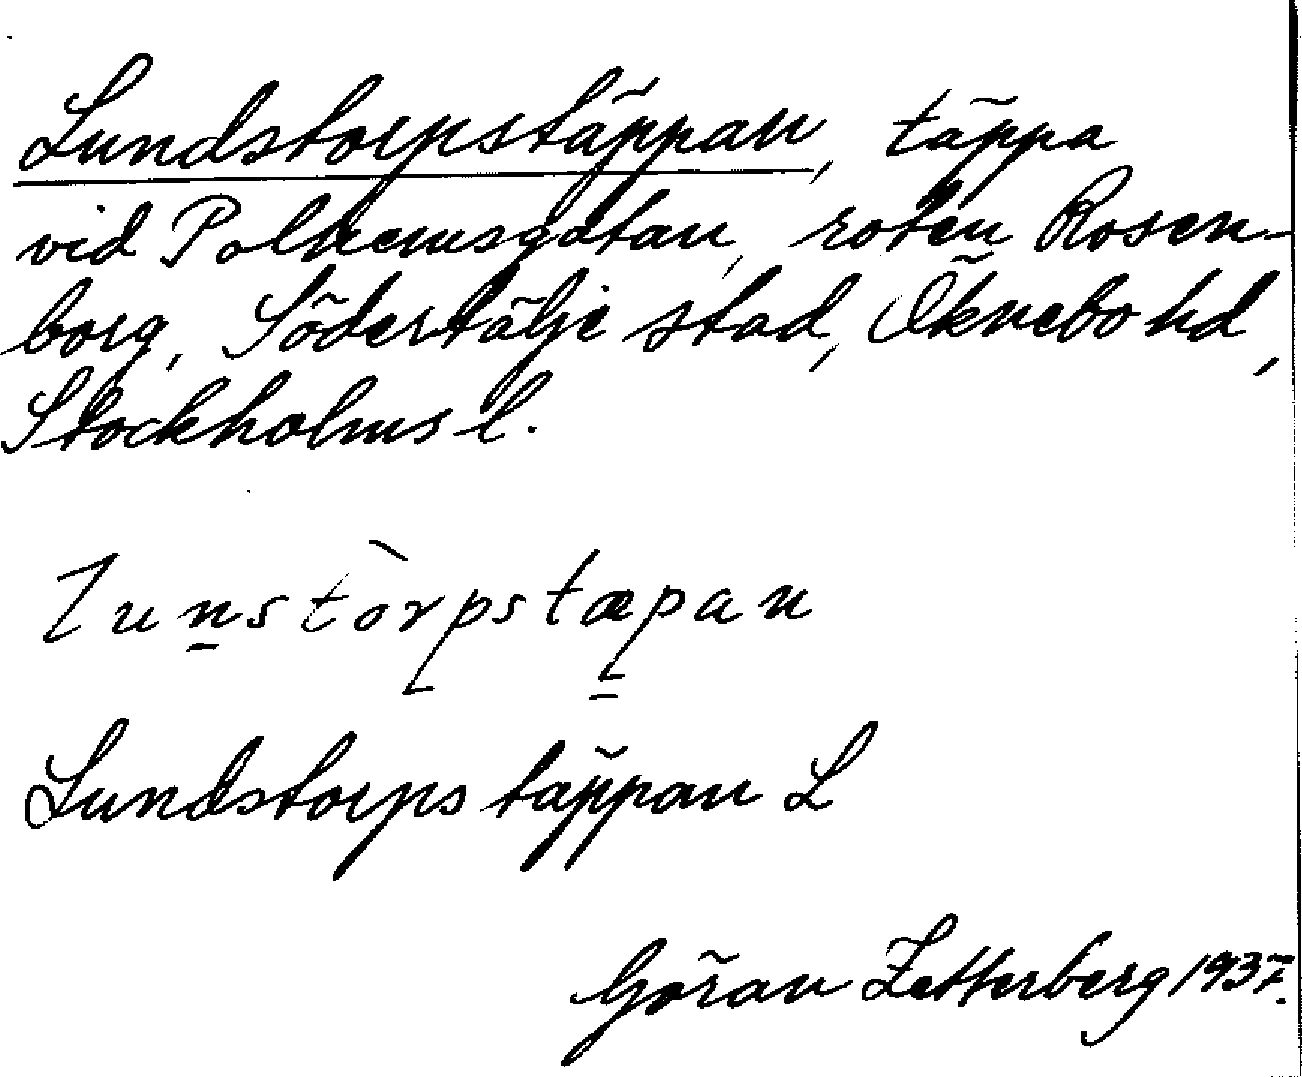 Lundstorpstäppan, täppa
vid Polhemsgatan, roten Rosen-
borg, Södertälje stad, Öknebo hd,
Stockholms l.
lun̲stòrpstæp̲an
Lundstorpstäppan L
Göran Zetterberg 1937.